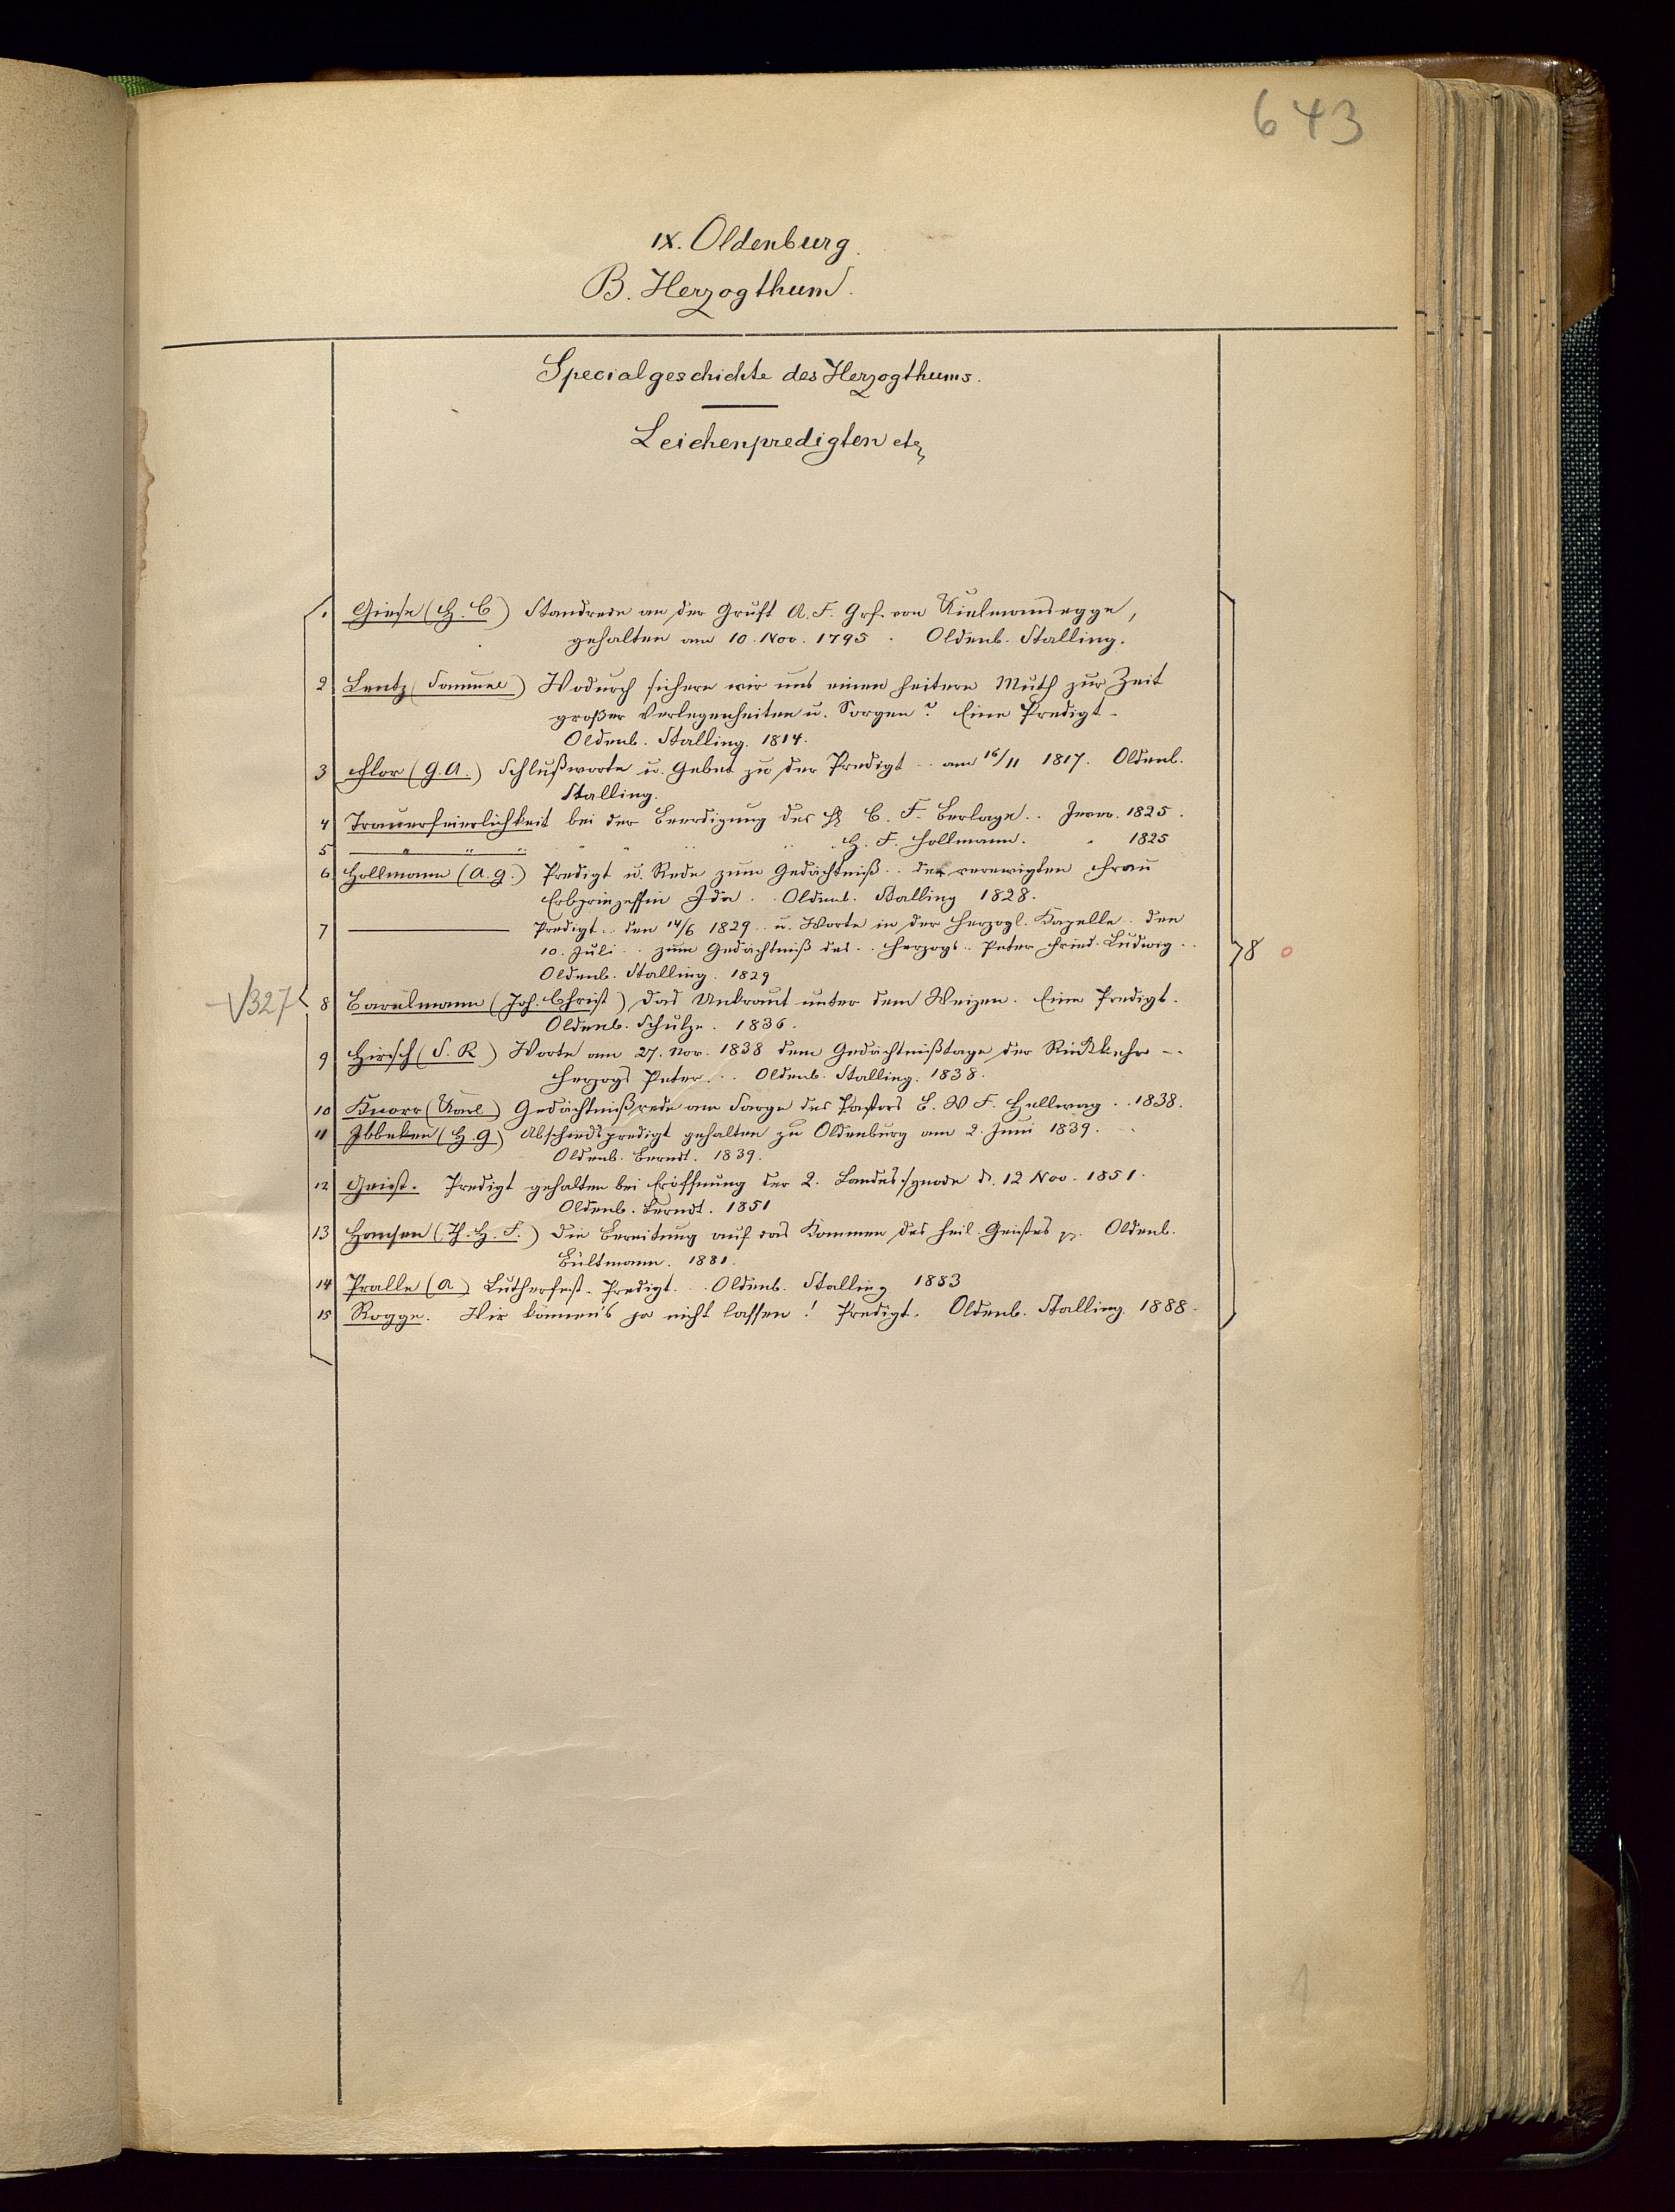 643
IX. Oldenburg.
B. Herzogthum.
Specialgeschichte des Herzogthums.
Leichenpredigten etz
1. Giese (H. C) Standrede an der Gruft A. F. Grf. von Kielmansegge,
gehalten am 10. Nov. 1795. Oldenb. Stalling.
2 Lentz (Samuel) Wodurch sichern wir uns einen heitern Muth zur Zeit
großer Verlegenheiten u. Sorgen? Eine Predigt.
Oldenb. Stalling. 1814.
3 Flor (G. A.) Schlußworte u. Gebet zu der Predigt .. am 16/11 1817. Oldenb.
Stalling.
4 Trauerfeierlichkeit bei der Beerdigung des H C. F. Berlage.. Jever. 1825.
5 " " " " " " " H. F. Hollmann. " 1825
6 Hollmann (A. G.) Predigt u. Rede zum Gedächtniß .. der verewigten Frau
Erbprinzessin Ida .. Oldenb. Stalling 1828.
7 Predigt .. den 14/6 1829 .. u. Worte in der Herzogl. Kapelle .. den
10. Juli .. zum Gedächtniß des .. Herzogs .. Peter Fried. Ludwig ..
Oldenb. Stalling. 1829
78 o
V327
8 Barelmann (Joh. Christ) Das Unkraut unter dem Weizen. Eine Predigt.
Oldenb. Schulze. 1836.
9 Hirsch (S. R) Worte am 27. Nov. 1838 dem Gedächtnißtage der Rückkehr ..
Herzogs Peter .. Oldenb. Stalling. 1838.
10 Knorr (Karl) Gedächtnißrede am Sarge des Pastors E. W F. Hellwag .. 1838.
11 Ibbeken (H. G) Abschiedspredigt gehalten zu Oldenburg am 2. Juni 1839. ..
Oldenb. Berndt. 1839.
12 Geist. Predigt gehalten bei Eröffnung der 2. Landessynode d. 12 Nov. 1851.
Oldenb. Berndt. 1851
13 Hansen (Th. H. F.) Die Bereitung auf das Kommen des heil. Geistes p. Oldenb.
Bültmann. 1881.
14 Pralle (A) Lutherfest-Predigt. .. Oldenb. Stalling 1883
15 Rogge. Wir können's ja nicht lassen! Predigt. Oldenb. Stalling. 1888.
1